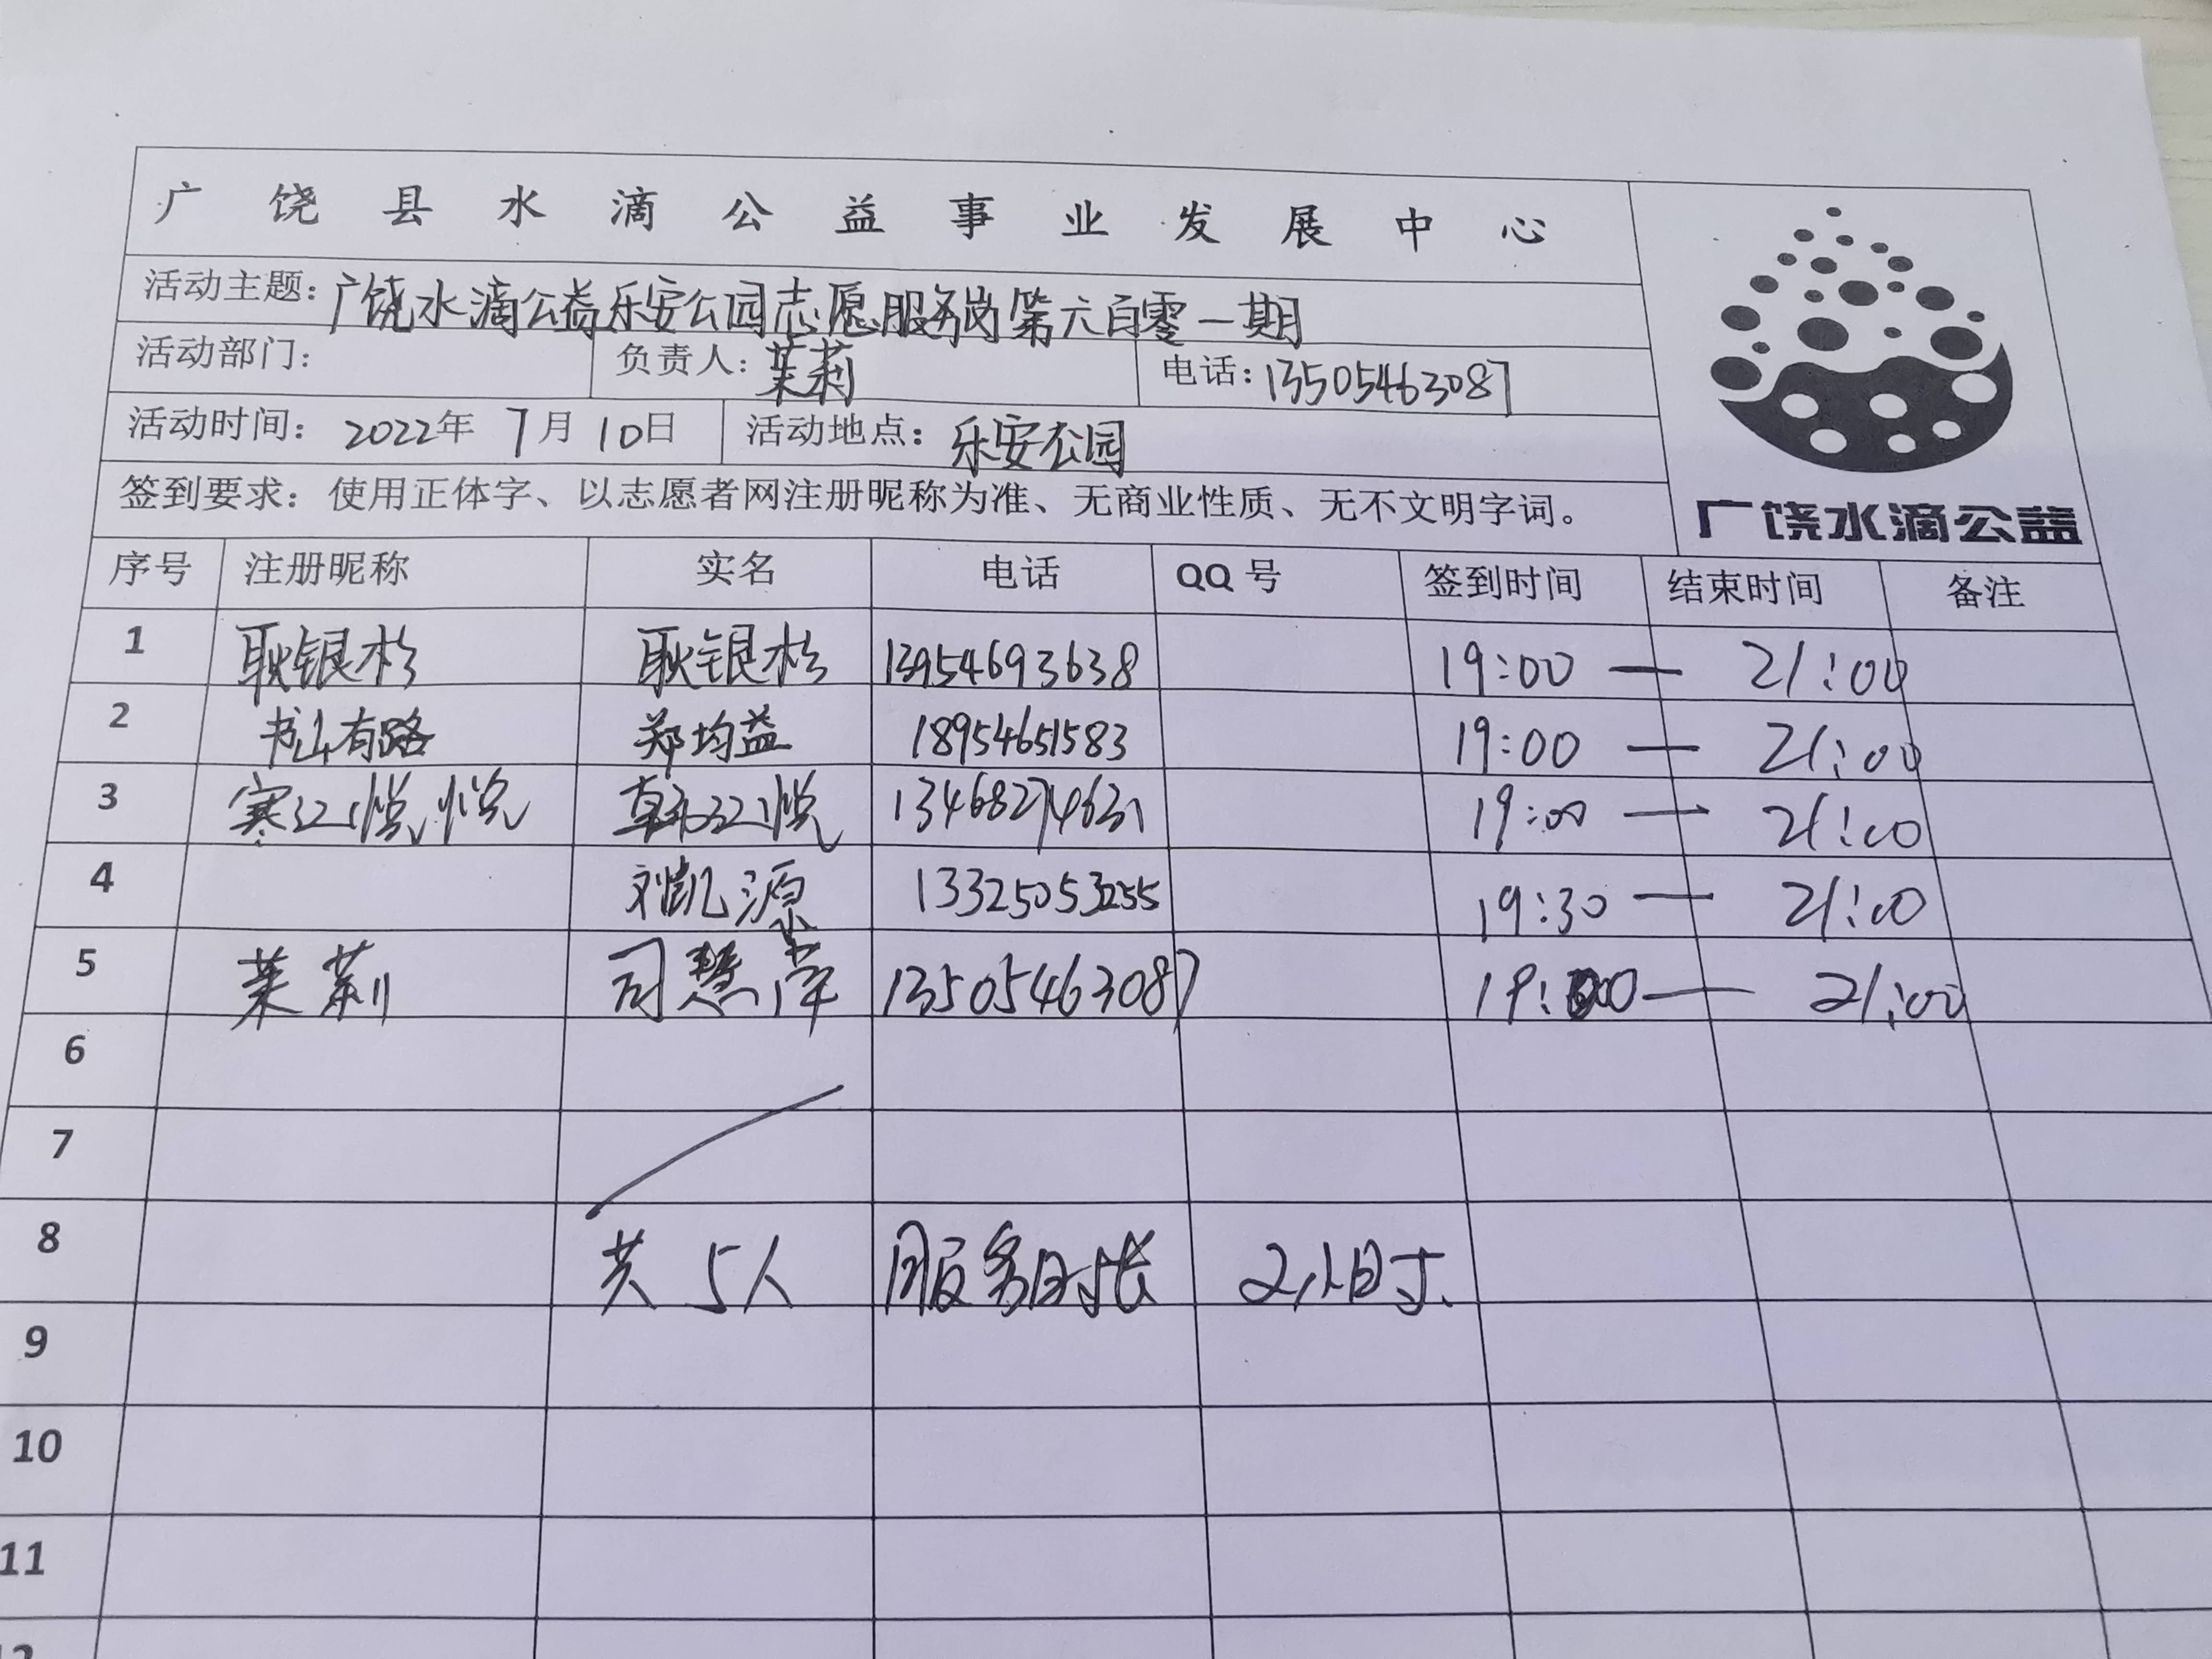 广饶县水滴公益事业发展中心
活动主题：广饶水滴公益乐安公园志愿服务岗第六百零一期
活动部门： 负责人：茉莉 电话：13505463087
活动时间：2022年7月10日 活动地点：乐安公园
签到要求：使用正体字、以志愿者网注册昵称为准、无商业性质、无不文明字词。
广饶水滴公益
序号 注册昵称 实名 电话 QQ号 签到时间 结束时间 备注
1 耿银杉 耿银杉 13954693638 19:00 — 21:00
2 书山有路 郑均益 18954651583 19:00 — 21:00
3 寒江悦悦 韩江悦 19:00 — 21:00
4 刘凯源 13325053255 19:30 — 21:00
5 茉莉 司慧萍 13505463087 19:00 — 21:00
6
7
8 共5人 服务时长 2小时
9
10
11